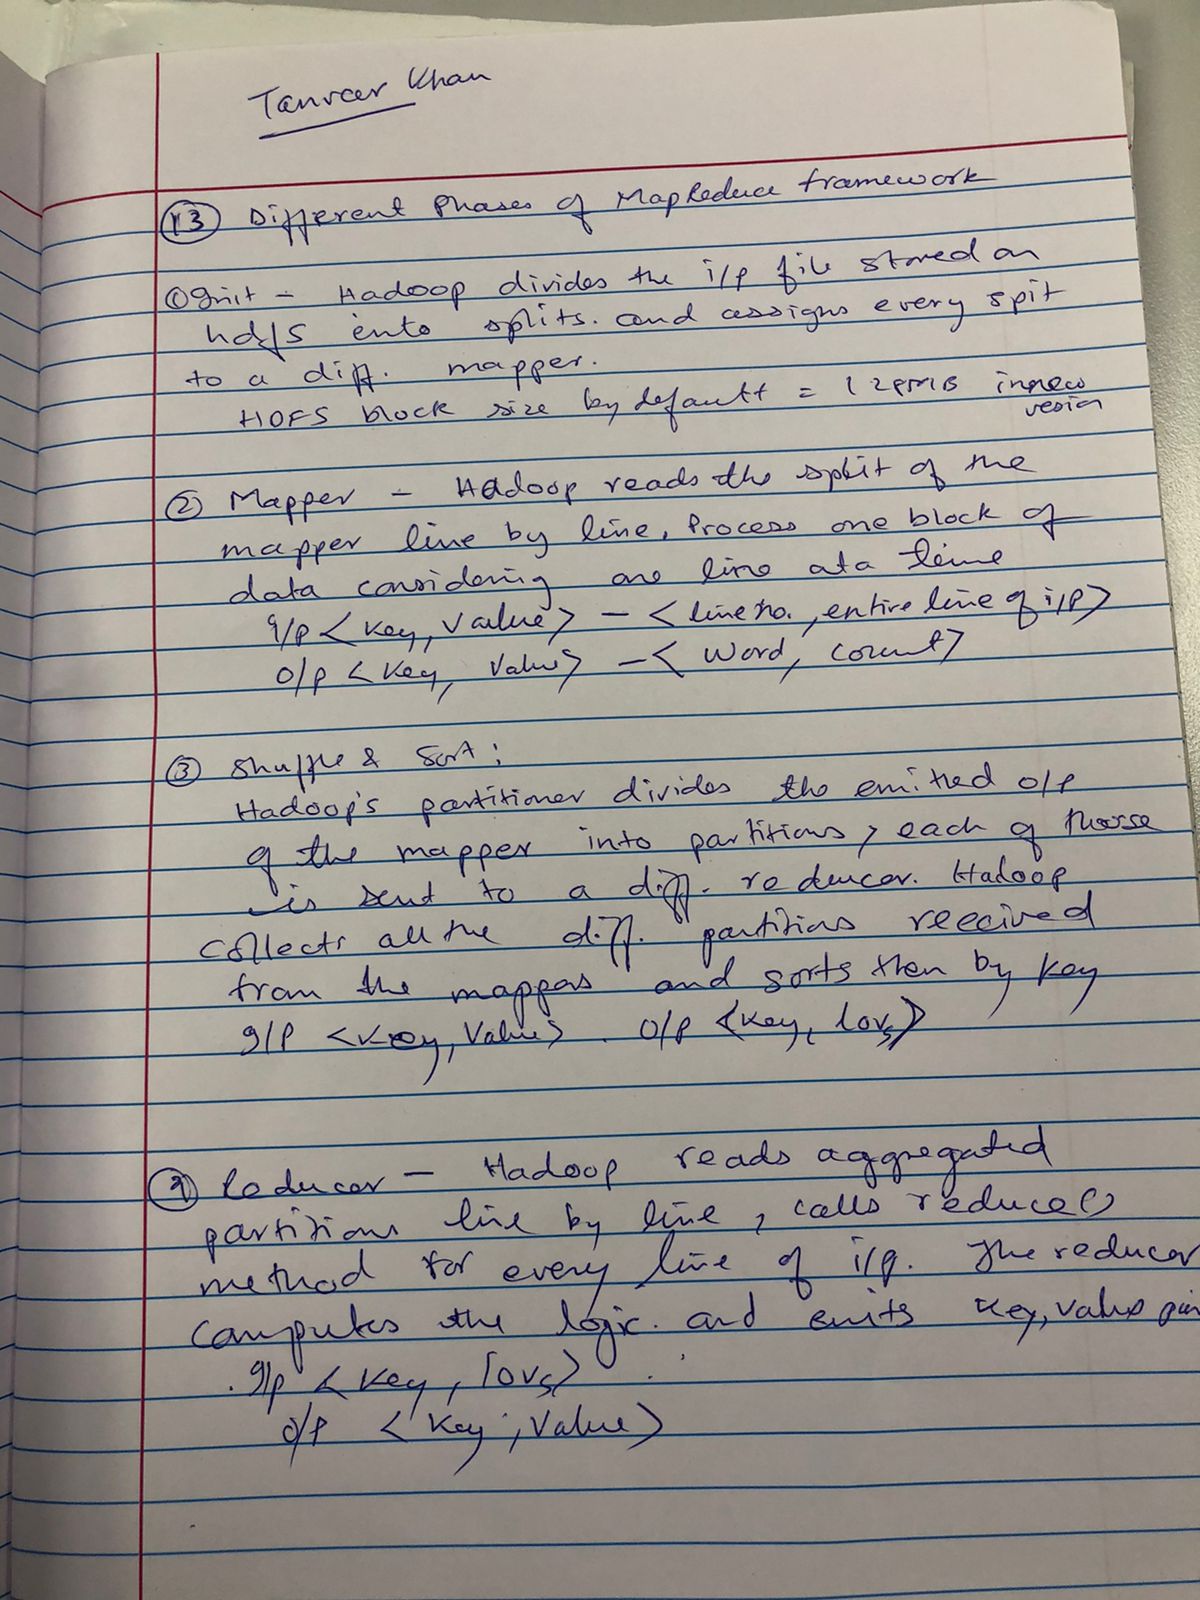 Tanveer Khan
(13) Different Phases of MapReduce framework
① Init - Hadoop divides the i/p file stored on
hdfs into splits. and assigns every spit
to a diff. mapper.
HDFS block size by default = 128MB in new
vesion
② Mapper - Hadoop reads the split of the
mapper line by line, Process one block of
data considering one line at a time
I/p <Key, Value> - <line no., entire line of i/p>
O/p <Key, Value> - < Word, count>
③ Shuffle & Sort:
Hadoop's partitioner divides the emitted o/p
of the mapper into partitions, each of those
is sent to a diff. reducer. Hadoop
Collects all the diff. partitions received
from the mappers and sorts them by key
I/P <Key, Value> . O/P <Key, lovs>
④ Reducer - Hadoop reads aggregated
partitions line by line, calls reduce()
method for every line of i/p. The reducer
Computes the logic. and emits key, value pair
I/p < Key, lovs>
o/p < Key, Value>